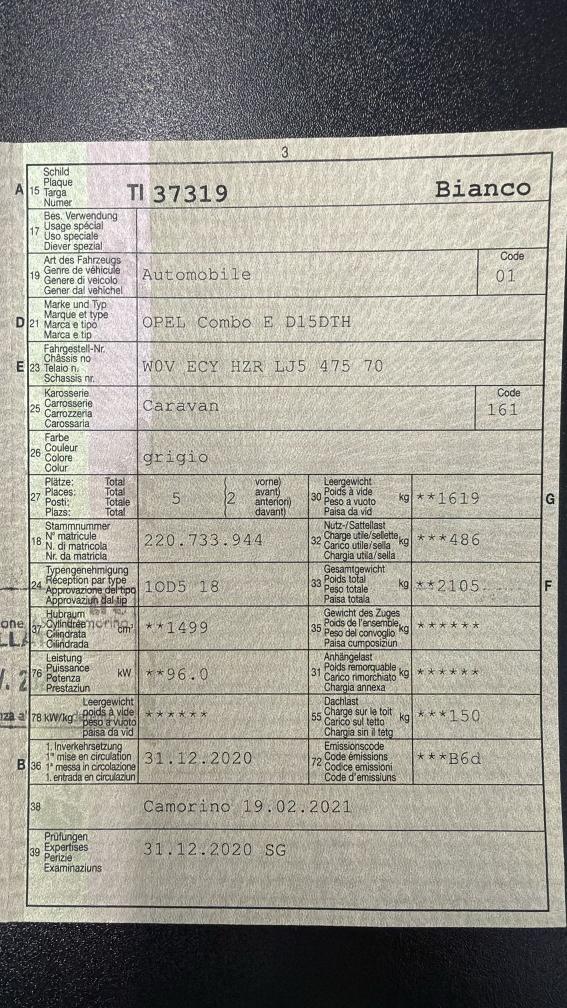 3
A 15 Schild
Plaque
Targa
Numer
TI 37319 Bianco
17 Bes. Verwendung
Usage spécial
Uso speciale
Diever spezial
19 Art des Fahrzeugs
Genre de véhicule
Genere di veicolo
Gener dal vehichel
Automobile
Code
01
D 21 Marke und Typ
Marque et type
Marca e tipo
Marca e tip
OPEL Combo E D15DTH
E 23 Fahrgestell-Nr.
Châssis no
Telaio n.
Schassis nr.
W0V ECY HZR LJ5 475 70
25 Karosserie
Carrosserie
Carrozzeria
Carossaria
Caravan
Code
161
26 Farbe
Couleur
Colore
Colur
grigio
27 Plätze: Total
Places: Total
Posti: Totale
Plazs: Total
5
(2 vorne)
avant)
anteriori)
davant)
30 Leergewicht
Poids à vide
Peso a vuoto
Paisa da vid
kg **1619 G
18 Stammnummer
N° matricule
N. di matricola
Nr. da matricla
220.733.944
32 Nutz-/Sattellast
Charge utile/sellette
Carico utile/sella
Chargia utila/sella
kg ***486
24 Typengenehmigung
Réception par type
Approvazione del tipo
Approvaziun dal tip
1OD5 18
33 Gesamtgewicht
Poids total
Peso totale
Paisa totala
kg **2105 F
37 Hubraum
Cylindrée
Cilindrata
Cilindrada
cm³ **1499
35 Gewicht des Zuges
Poids de l'ensemble
Peso del convoglio
Paisa cumposiziun
kg ******
76 Leistung
Puissance
Potenza
Prestaziun
kW **96.0
31 Anhängelast
Poids remorquable
Carico rimorchiato
Chargia annexa
kg ******
78 kW/kg Leergewicht
poids à vide
peso a vuoto
paisa da vid
******
55 Dachlast
Charge sur le toit
Carico sul tetto
Chargia sin il tetg
kg ***150
B 36 1. Inverkehrsetzung
1re mise en circulation
1a messa in circolazione
1. entrada en circulaziun
31.12.2020
72 Emissionscode
Code émissions
Codice emissioni
Code d'emissiuns
***B6d
38
Camorino 19.02.2021
39 Prüfungen
Expertises
Perizie
Examinaziuns
31.12.2020 SG